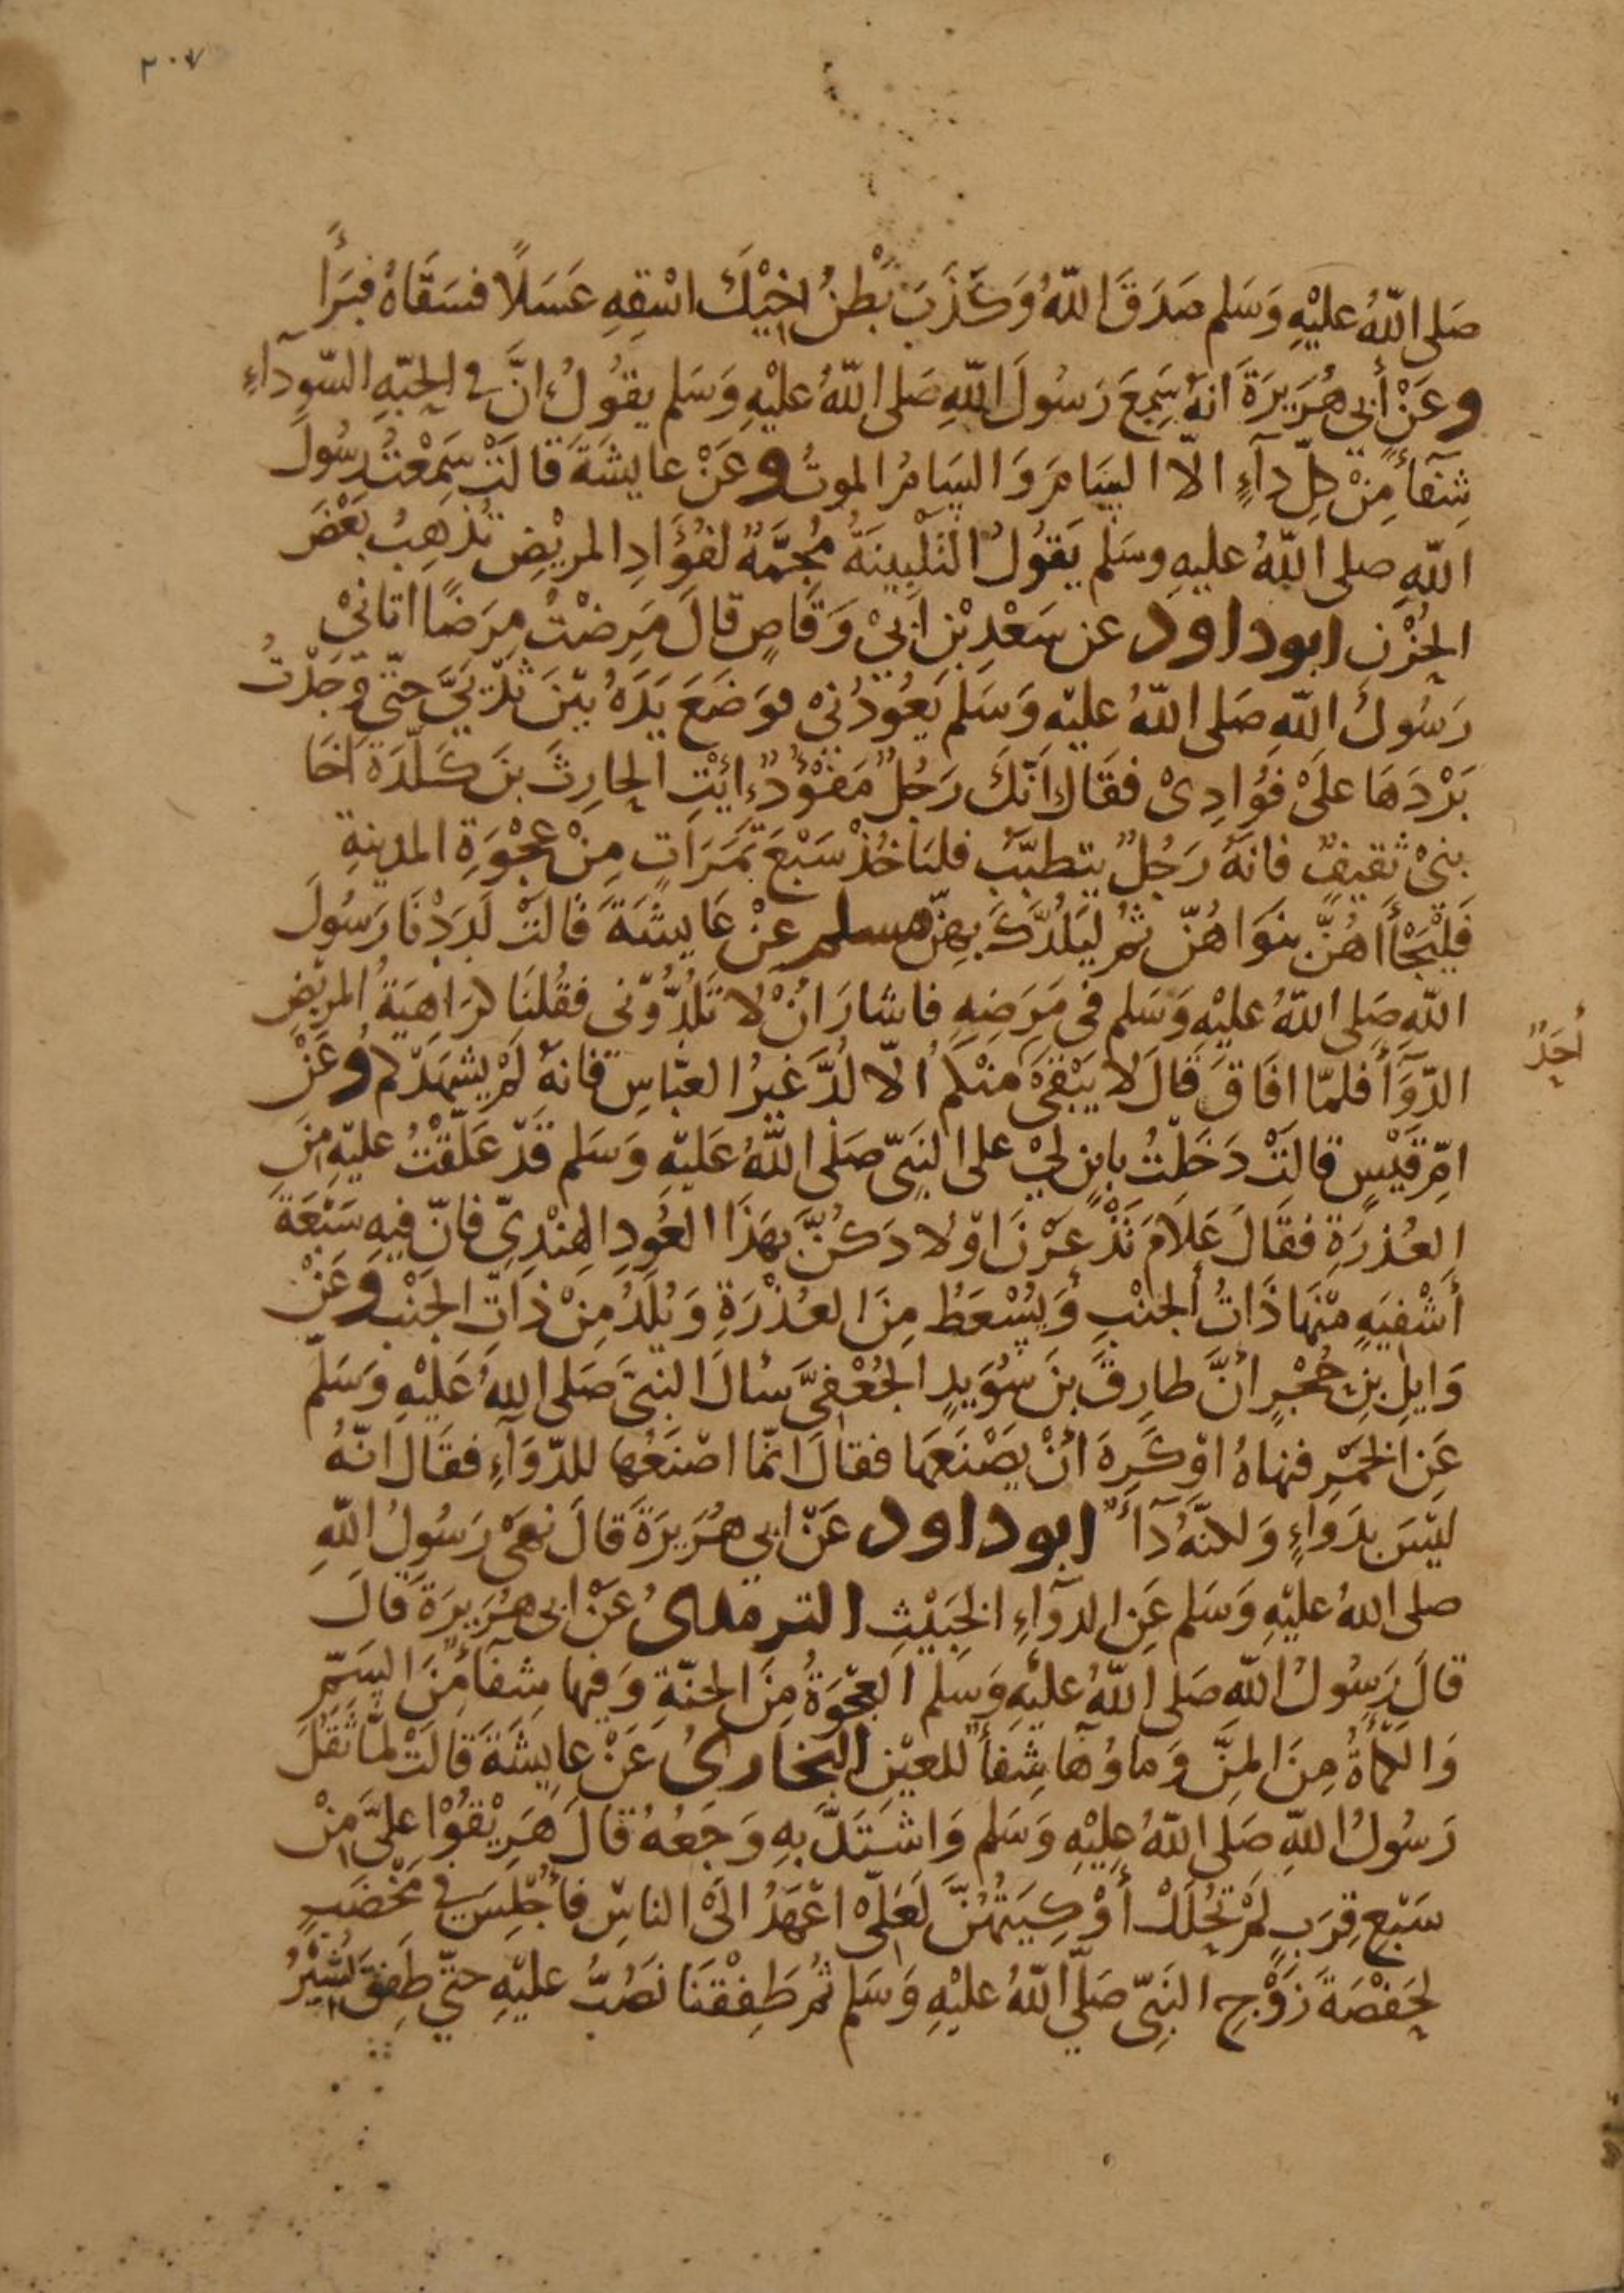 ٢٠٧
صَلى اللّٰهُ عليْهِ وَسَلم صَدَقَ اللّٰهُ وَكَذَبَ بَطْنُ اخِيْكَ اسْقِهِ عَسَلًا فسَقَاهُ فبَرَأَ
وعَنْ أَبى هُرَيرَةَ انهُ سَمِعَ رَسُولَ اللّٰهِ صَلى اللّٰهُ عليْهِ وَسَلم يقُولُ انَّ فى الحبّهِ السّودآءِ
شِفآءً مِنْ كلِّ دآءٍ الّا السَامَ وَالسَامُ الموتُ وعَنْ عايشَةَ قالَتْ سَمِعْتُ رسُولَ
اللّٰهِ صلى اللّٰهُ عليهِ وسَلم يَقوُلُ التَلْبِينَةُ مُجِمَّةٌ لفُؤَادِ المريْضِ تُذْهِبُ بَعْضَ
الحُزْنِ ابوداود عن سَعْدِ بْنِ ابيْ وَقاصٍ قالَ مَرِضْتُ مرَضًا اتانيْ
رَسُولُ اللّٰهِ صَلى اللّٰهُ عليْهِ وَسَلم يَعُوْدُنى فوَضَعَ يَدَهُ بيْنَ ثَدْيَيَّ حتّى وَجَدْتُ
بَرْدَهَا علَىْ فؤُادِىْ فقَالَ انّكَ رَجُلٌ مَفْؤُدٌ ايْتِ الحارِثَ بنَ كَلَدَةَ اخَا
بنىْ ثقِيفٍ فانهُ رَجُلٌ يتطبّبُ فلياخُذْ سَبْعَ تمَرَاتٍ مِنْ عجْوَةِ المدينةِ
فَلْيَجَأْاهُنّ بنوَاهُنّ ثمُ ليَلُدَّكَ بهِنّ مسلم عنْ عَايشَةَ قالتْ لَدَدْنَا رَسُولَ
اللّٰهِ صَلى اللّٰهُ عليْهِ وَسَلم فى مَرَضِهِ فاشارَ انْ لا تَلُدُّوْنى فقُلنَا كرَاهِيَةُ المريْضِ
الدّوَآءَ فلمّا افَاقَ قَالَ لا يَبْقىَ منْكم الّا لُدَّ غيرُ العبّاسِ فانهُ لَمْ يشهَدْكم وعَنْ
أحَدٌ
امِّ قَيْسٍ قالَتْ دَخَلْتُ بابنٍ لىْ على النبَىّ صَلى اللّٰهُ عَليْهِ وَسَلم قَدْ عَلّقْتُ عليْهِ مِنَ
العُذرَةِ فقَالَ عَلامَ تَدْغَرْنَ اوْلادَكُنَّ بهَذَا العُودِ الهِنْدِىّ فانّ فيهِ سَبْعَةَ
أَشْفِيَهٍ مْنهَا ذَاتُ الجنْبِ وَيُسْعَطُ مِنَ العُذْرَةِ وَيُلَدُ مِنْ ذاتِ الجنْبِ وعَنْ
وَايلِ بنِ حُجْرٍ انَّ طارِقَ بنَ سُوَيدٍ الجُعْفىَّ سألَ النبىّ صَلى اللهُ عَليْهِ وَسَلّم
عَنِ الخمْرِ فنهاهُ اوْ كَرِهَ انْ يصْنَعهَا فقالَ انّما اصْنَعُها للدّوَآءِ فقَالَ انّهُ
ليْسَ بدَوَآءٍ وَلكنّهُ دَآءٌ ابوداود عَنْ ابي هُرَيرَةَ قَالَ نهىْ رَسُولُ اللّٰهِ
صلى اللهُ عليْهِ وَسَلم عَنِ الدوَآءِ الخَبيْثِ الترمذىُ عَنْ ابى هُرَيرَةَ قالَ
قالَ رَسُولُ اللّٰهِ صَلى اللّٰهُ عليْهِ وَسَلم العجْوَةُ مِنَ الجنّةِ وَفيها شفآءٌ مِنَ السَمِّ
وَالكمْأَةُ مِنَ المنِّ وَماؤُهَا شِفآءٌ للعيْنِ البخارىُ عَنْ عايشَةَ قَالَتْ لمّا ثَقُلَ
رَسُولُ اللّٰهِ صَلى اللّٰهُ عليْهِ وَسَلم وَاشتَدَّ بهِ وَجَعُهُ قالَ هَرِيْقوُا علىَّ مِنْ
سَبْعِ قِرَبٍ لمْ تُحْلَلْ أَوْكِيَتُهُنَّ لَعَلىّ اعْهَدُ الىَ الناسِ فأُجْلِسَ فى مَخْضَبٍ
لحَفْصَةَ زَوْجِ النبِىّ صَلى اللّٰهُ عليْهِ وَسَلم ثمُ طَفِقْنَا نَصُبُّ عليْهِ حتّي طَفِقَ يُشيْرُ